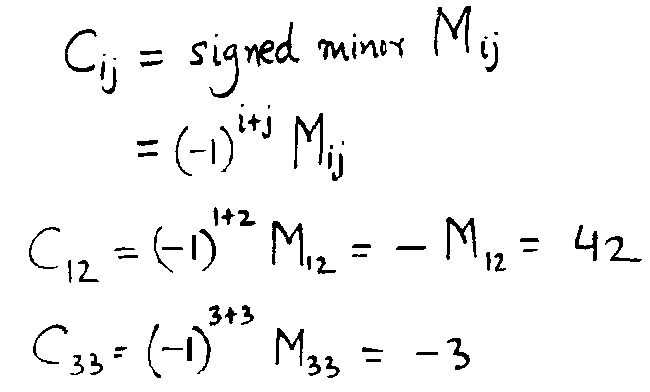 C_ij = signed minor M_ij
= (-1)^i+j M_ij
C_12 = (-1)^1+2 M_12 = - M_12 = 42
C_33 = (-1)^3+3 M_33 = -3